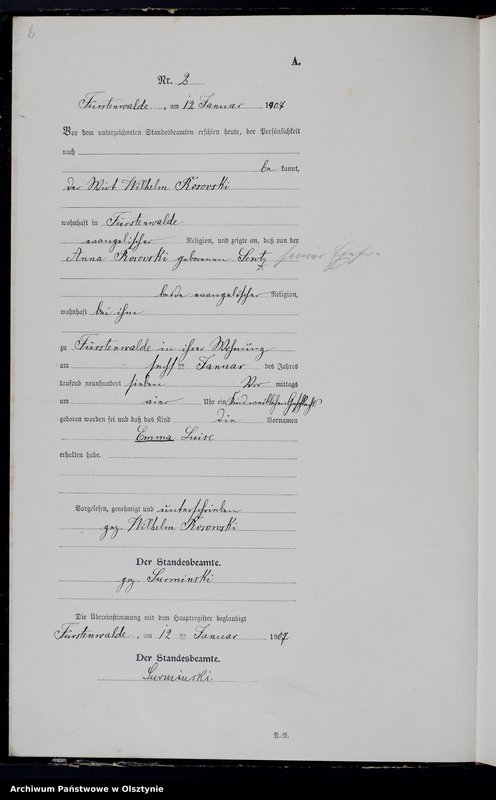 2
A.
Nr. 2
Fürstenwalde, am 12 Januar 1907
Vor dem unterzeichneten Standesbeamten erschien heute, der Persönlichkeit
nach
be kannt,
der Wirt Wilhelm Kosowski
wohnhaft in Fürstenwalde
evangelischer Religion, und zeigte an, daß von der
Anna Kosowski geborenen seiner
beide evangelischer Religion,
wohnhaft bei ihm
zu Fürstenwalde in ihrer Wohnung
am sechs ten Januar des Jahres
tausend neunhundert sieben Vor mittags
um vier Uhr ein Kind weiblichen Geschlechts
geboren worden sei und daß das Kind die Vornamen
Emma Luise
erhalten habe.
Vorgelesen, genehmigt und unterschrieben
gez. Wilhelm Kosowski
Der Standesbeamte.
gez. Surminski
Die Übereinstimmung mit dem Hauptregister beglaubigt
Fürstenwalde, am 12 ten Januar 1907
Der Standesbeamte.
Surminski.
Archiwum Państwowe w Olsztynie